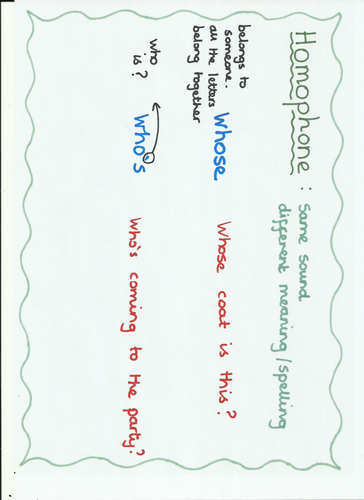 Homophone : Same sound
different meaning/spelling
belongs to
someone.
all the letters
belong together
Whose
Whose coat is this?
who
is?
Who's
Who's coming to the party?